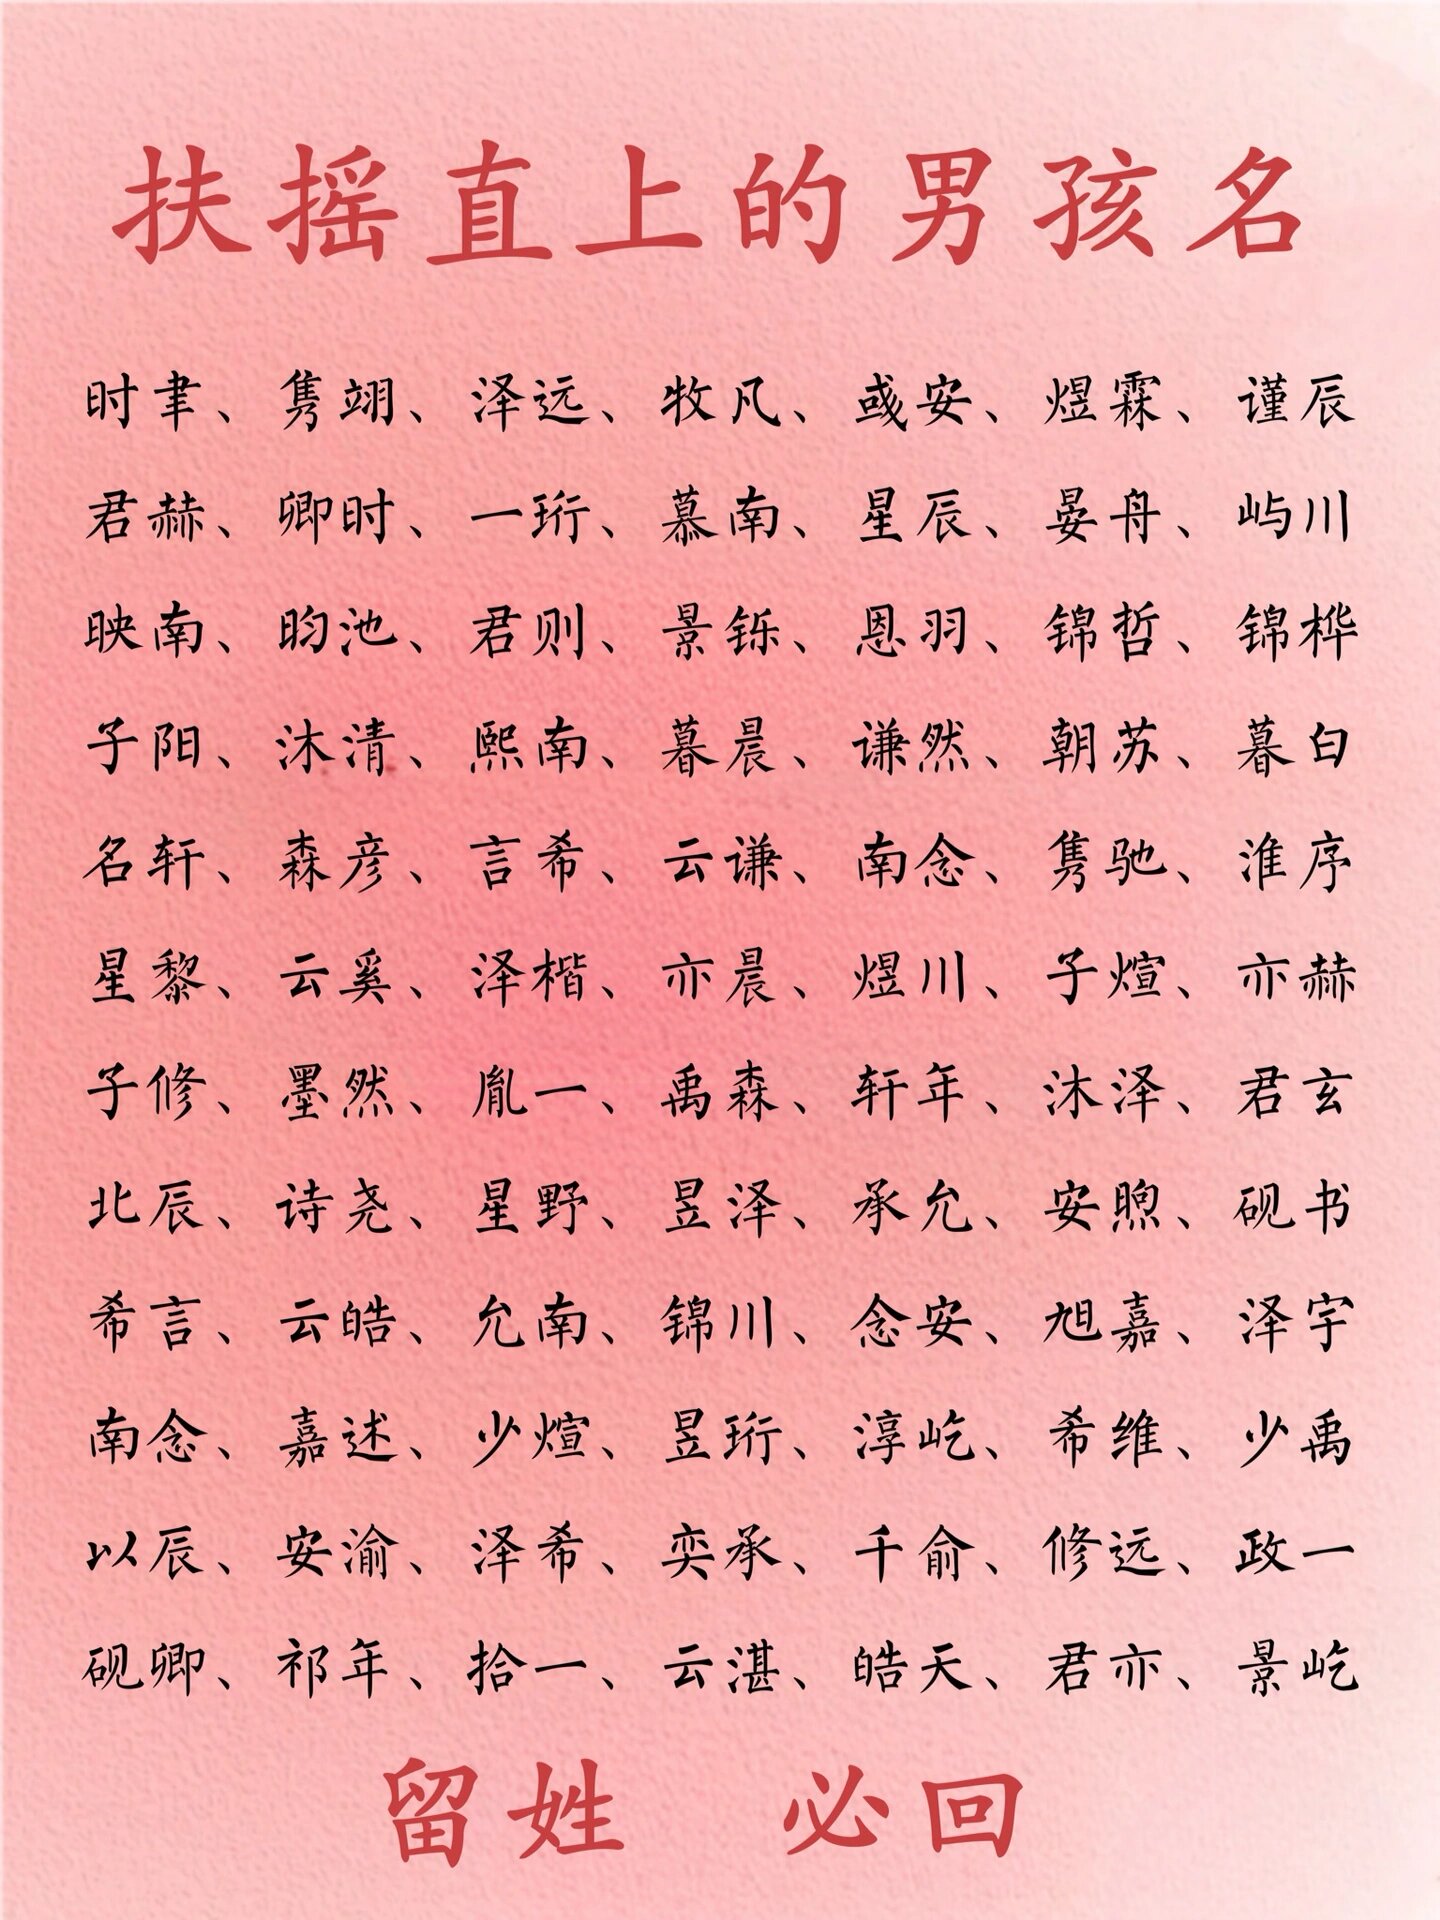 扶摇直上的男孩名
时聿、隽翊、泽远、牧凡、彧安、煜霖、谨辰
君赫、卿时、一珩、慕南、星辰、晏舟、屿川
映南、昀池、君则、景铄、恩羽、锦哲、锦桦
子阳、沐清、熙南、暮晨、谦然、朝苏、暮白
名轩、森彦、言希、云谦、南念、隽驰、淮序
星黎、云奚、泽楷、亦晨、煜川、子煊、亦赫
子修、墨然、胤一、禹森、轩年、沐泽、君玄
北辰、诗尧、星野、昱泽、承允、安煦、砚书
希言、云皓、允南、锦川、念安、旭嘉、泽宇
南念、嘉述、少煊、昱珩、淳屹、希维、少禹
以辰、安渝、泽希、奕承、千俞、修远、政一
砚卿、祁年、拾一、云湛、皓天、君亦、景屹
留姓 必回